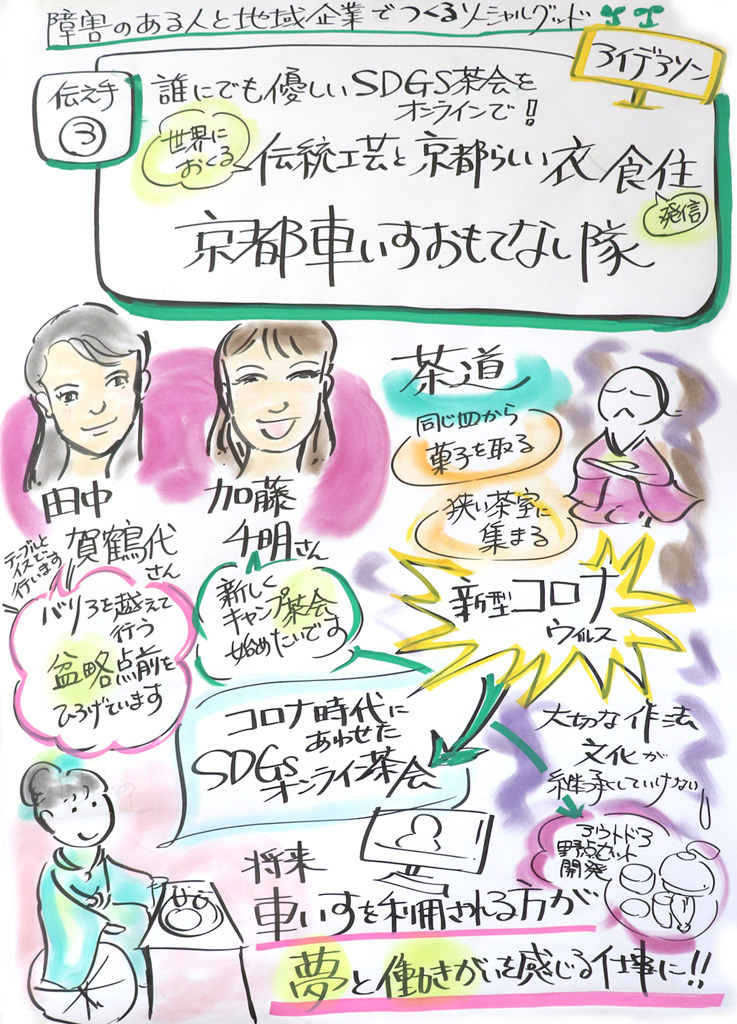 障害のある人と地域企業でつくるソーシャルグッド
アイデアソン
伝え手
③
誰にでも優しいSDGS茶会を
オンラインで!
世界に
おくる
伝統工芸と京都らしい衣食住
発信
京都車いすおもてなし隊
田中
賀鶴代
さん
加藤
千明さん
テーブルと
イスで
行います
バリアを越えて
行う
盆略点前を
ひろげています
新しく
キャンプ茶会
始めたいです
茶道
同じ皿から
菓子を取る
狭い茶室に
集まる
新型コロナ
ウィルス
大切な作法
文化が
継承していけない
コロナ時代に
あわせた
SDGs
オンライン茶会
アウトドア
野点セット
開発
将来
車いすを利用される方が
夢と働きがいを感じる仕事に!!